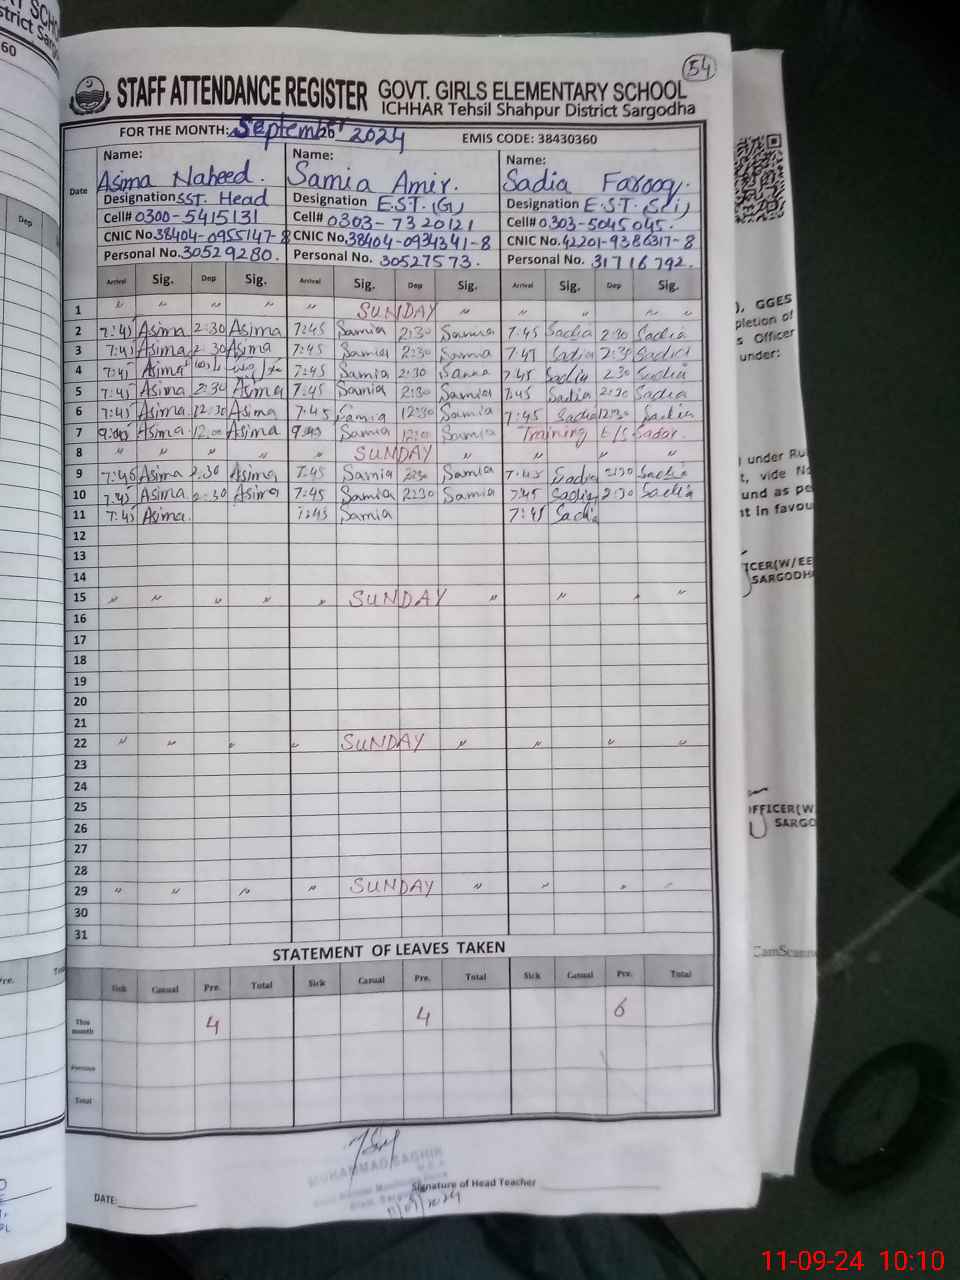 54
STAFF ATTENDANCE REGISTER GOVT. GIRLS ELEMENTARY SCHOOL
ICHHAR Tehsil Shahpur District Sargodha
FOR THE MONTH: September 2024 EMIS CODE: 38430360
Date Name: Asima Naheed. Name: Samia Amir. Name: Sadia Farooq.
Designation SST. Head Designation E.S.T. (G) Designation E.S.T. (Sci)
Cell# 0300-5415131 Cell# 0303-7320121 Cell# 0303-5045045.
CNIC No. 38404-0955147-8 CNIC No. 38404-0934341-8 CNIC No. 42201-9386317-8
Personal No. 30529280. Personal No. 30527573. Personal No. 31716792.
Arrival Sig. Dep Sig. Arrival Sig. Dep Sig. Arrival Sig. Dep Sig.
1 " " " " " SUNDAY " " " " "
2 7:45 Asima 2:30 Asima 7:45 Samia 2:30 Samia 7:45 Sadia 2:30 Sadia
3 7:45 Asima 2:30 Asima 7:45 Samia 2:30 Samia 7:45 Sadia 2:30 Sadia
4 7:45 Asima 7:45 Samia 2:30 Samia 7:45 Sadia 2:30 Sadia
5 7:45 Asima 2:30 Asima 7:45 Samia 2:30 Samia 7:45 Sadia 2:30 Sadia
6 7:45 Asima 12:30 Asima 7:45 Samia 12:30 Samia 7:45 Sadia 12:30 Sadia
7 9:00 Asima 12:00 Asima Samia 12:00 Samia Training Sadar.
8 " " " " " SUNDAY " " " " "
9 7:45 Asima 2:30 Asima 7:45 Samia 2:30 Samia 7:45 Sadia 2:30 Sadia
10 7:45 Asima 2:30 Asima 7:45 Samia 2:30 Samia 7:45 Sadia 2:30 Sadia
11 7:45 Asima. 7:45 Samia 7:45 Sadia
12
13
14
15 " " " " " SUNDAY " " " "
16
17
18
19
20
21
22 " " " " SUNDAY " " " "
23
24
25
26
27
28
29 " " " " SUNDAY " " " "
30
31
STATEMENT OF LEAVES TAKEN
Sick Casual Pre. Total Sick Casual Pre. Total Sick Casual Pre. Total
This month 4 4 6
Previous
Total
MUHAMMAD SAGHIR
DATE: Signature of Head Teacher
11/09/2024
60
Dep
Pre.
GGES
pletion of
s Officer
under:
under Ru
t, vide No
und as pe
nt in favou
ICER(W/EE
SARGODH
OFFICER(W
SARGO
CamScann
11-09-24 10:10